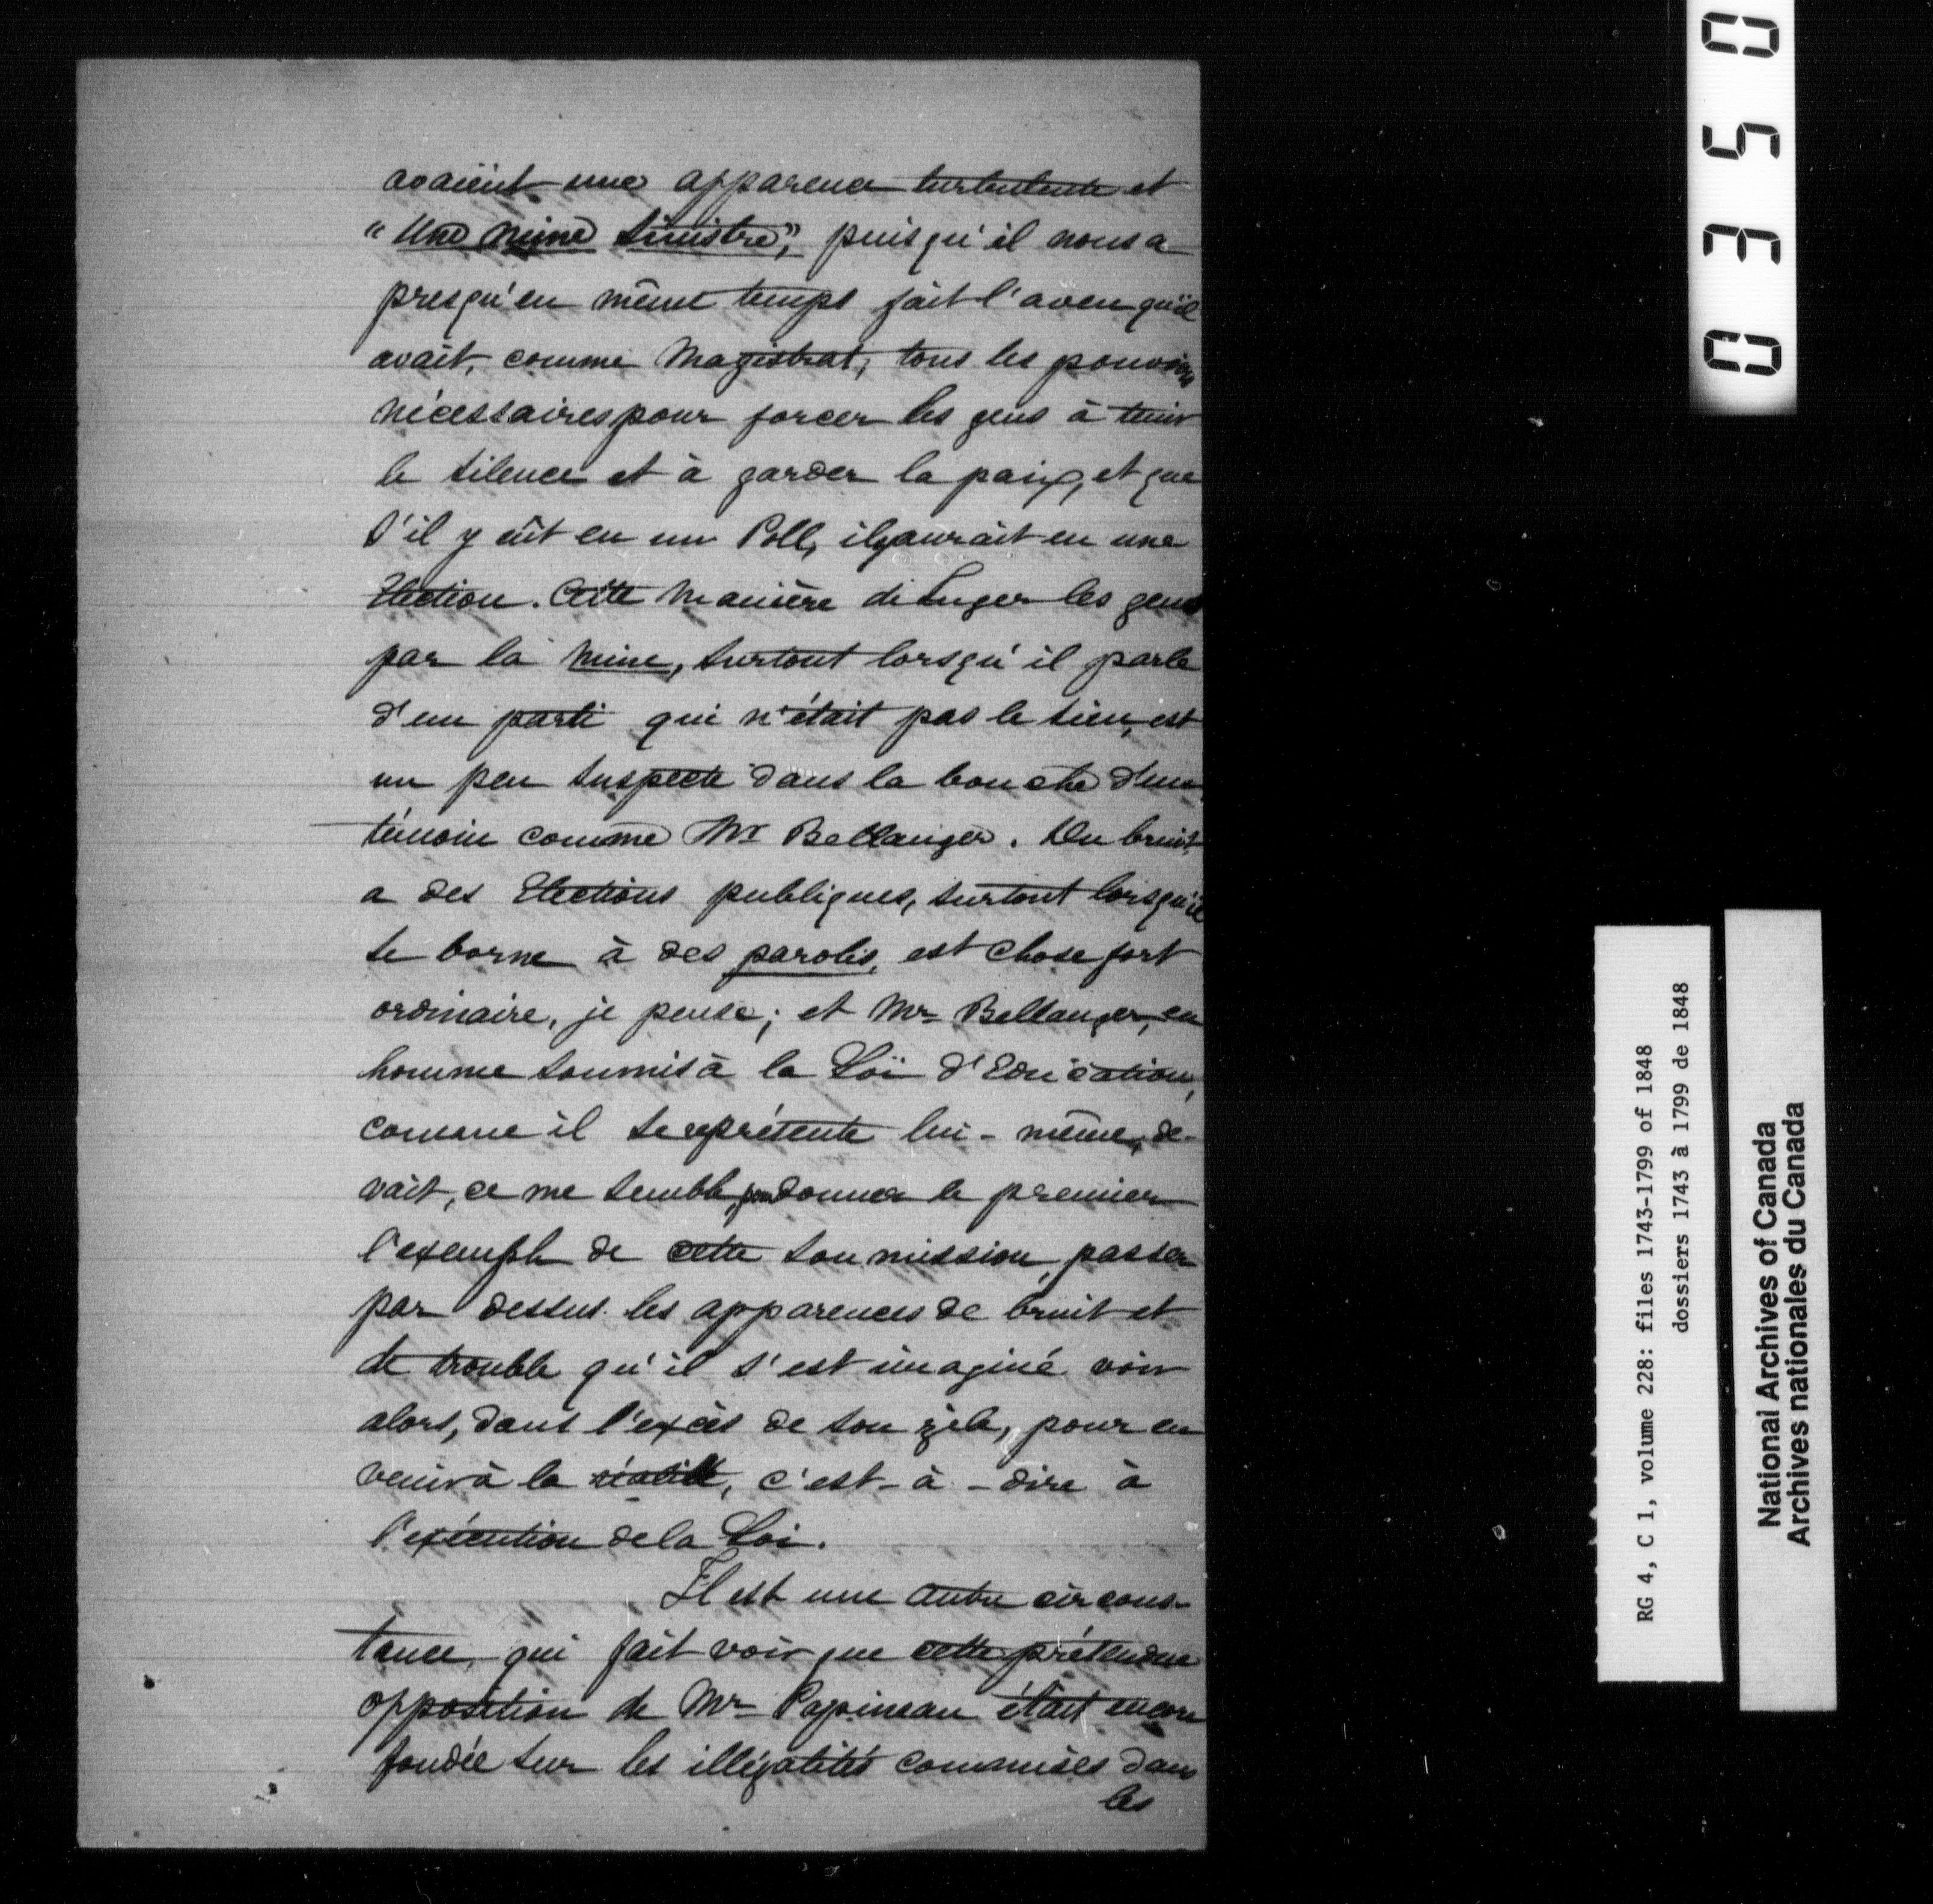 avaient une apparence turbulente et
"Une mine sinistre", puisqu'il nous a
presqu'en même temps fait l'aveu qu'il
avait, comme Magistrat, tous les pouvoirs
nécessaires pour forcer les gens à tenir
le silence et à garder la paix, et que
s'il y eût eu un Poll, il y aurait eu une
Election. Cette manière de Juger les gens
par la mine, surtout lorsqu'il parle
d'un parti qui n'était pas le sien, est
un peu suspecte dans la bouche d'un
témoin comme Mr Bellanger. Du bruit
a des Elections publiques, surtout lorsqu'il
se borne à des paroles, est chose fort
ordinaire, je pense; et Mr Bellanger, en
homme soumis à la Loi d'Education,
comme il se représente lui-même, de-
vait, ce me semble, pour donner le premier
l'exemple de cette soumission, passer
par dessus les apparences de bruit et
de trouble qu'il s'est imaginé voir
alors, dans l'excès de son zèle, pour en
venir à la réalité, c'est-à-dire à
l'exécution de la Loi.
Il est une autre circons-
tance qui fait voir que cette prétendue
opposition de Mr Papineau était encore
fondée sur les illégalités commises dans
les
0350
RG 4, C 1, volume 228: files 1743-1799 of 1848
dossiers 1743 à 1799 de 1848
National Archives of Canada
Archives nationales du Canada